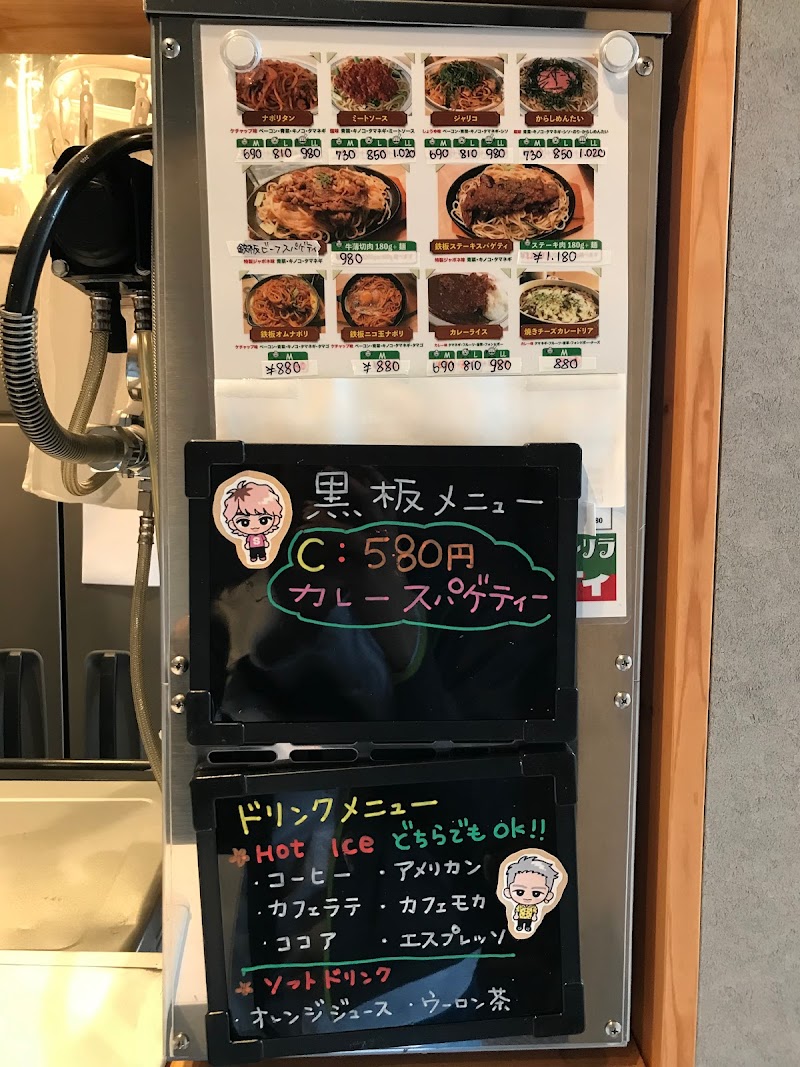 ナポリタン
ミートソース
ジャリコ
からしめんたい
ケチャップ味 ベーコン・青菜・キノコ・タマネギ
塩味 青菜・キノコ・タマネギ・ミートソース
しょうゆ味 ベーコン・青菜・キノコ・タマネギ・シソ
M L LL
690 810 980
M L LL
730 850 1.020
M L LL
690 810 980
M L LL
730 850 1.020
鉄板ビーフスパゲティ
牛薄切肉 180g+麺
980
特製ジャポネ味 青菜・キノコ・タマネギ
鉄板ステーキスパゲティ
ステーキ肉 180g+麺
¥1.180
特製ジャポネ味 青菜・キノコ・タマネギ
鉄板オムナポリ
鉄板ニコ玉ナポリ
カレーライス
焼きチーズカレードリア
ケチャップ味 ベーコン・青菜・キノコ・タマネギ・タマゴ
ケチャップ味 ベーコン・青菜・キノコ・タマネギ・タマゴ
M
¥880
M
¥880
M L LL
690 810 980
M
880
黒板メニュー
C:580円
カレースパゲティー
ドリンクメニュー
Hot Ice どちらでもOK!!
・コーヒー ・アメリカン
・カフェラテ ・カフェモカ
・ココア ・エスプレッソ
ソフトドリンク
・オレンジジュース ・ウーロン茶